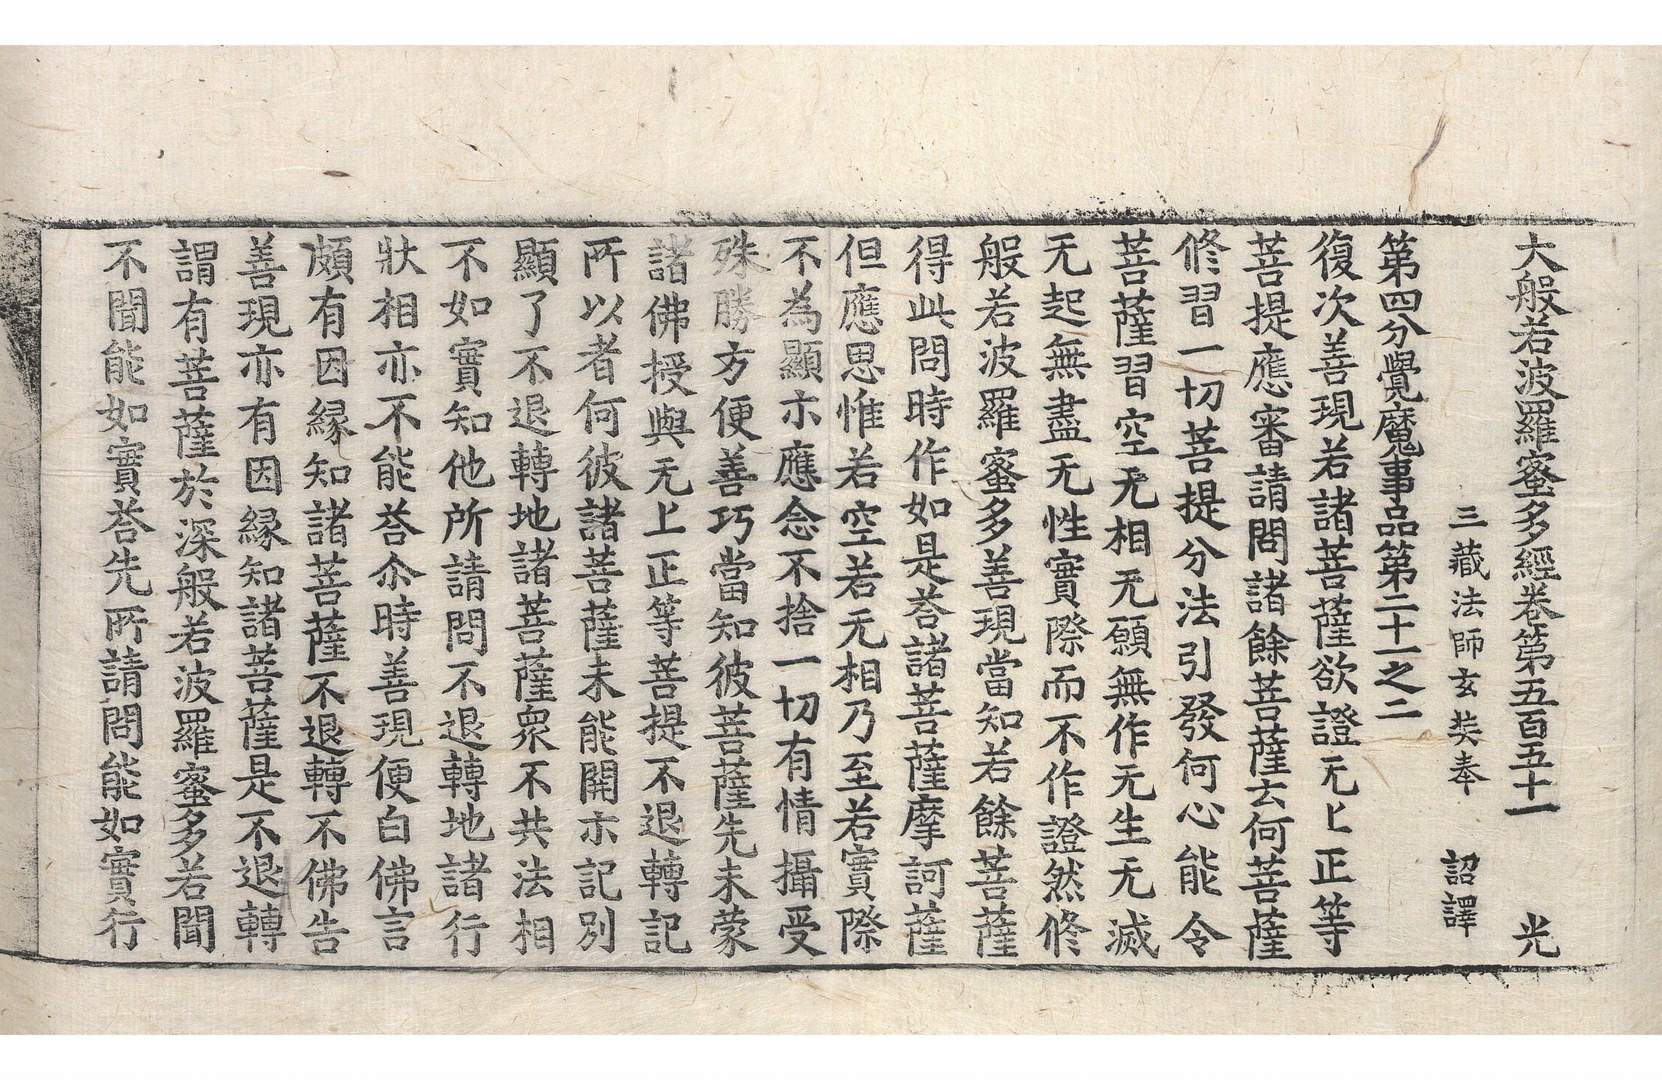 大般若波羅蜜多經卷第五百五十一　光
三藏法師玄奘奉　詔譯
第四分覺魔事品第二十一之二
復次善現若諸菩薩欲證无上正等
菩提應審請問諸餘菩薩云何菩薩
修習一切菩提分法引發何心能令
菩薩習空无相无願無作无生无滅
无起無盡无性實際而不作證然修
般若波羅蜜多善現當知若餘菩薩
得此問時作如是荅諸菩薩摩訶薩
但應思惟若空若无相乃至若實際
不為顯示應念不捨一切有情攝受
殊勝方便善巧當知彼菩薩先未蒙
諸佛授與无上正等菩提不退轉記
所以者何彼諸菩薩未能開示記別
顯了不退轉地諸菩薩衆不共法相
不如實知他所請問不退轉地諸行
狀相亦不能荅尒時善現便白佛言
頗有因緣知諸菩薩不退轉不佛告
善現亦有因緣知諸菩薩是不退轉
謂有菩薩於深般若波羅蜜多若聞
不聞能如實荅先所請問能如實行